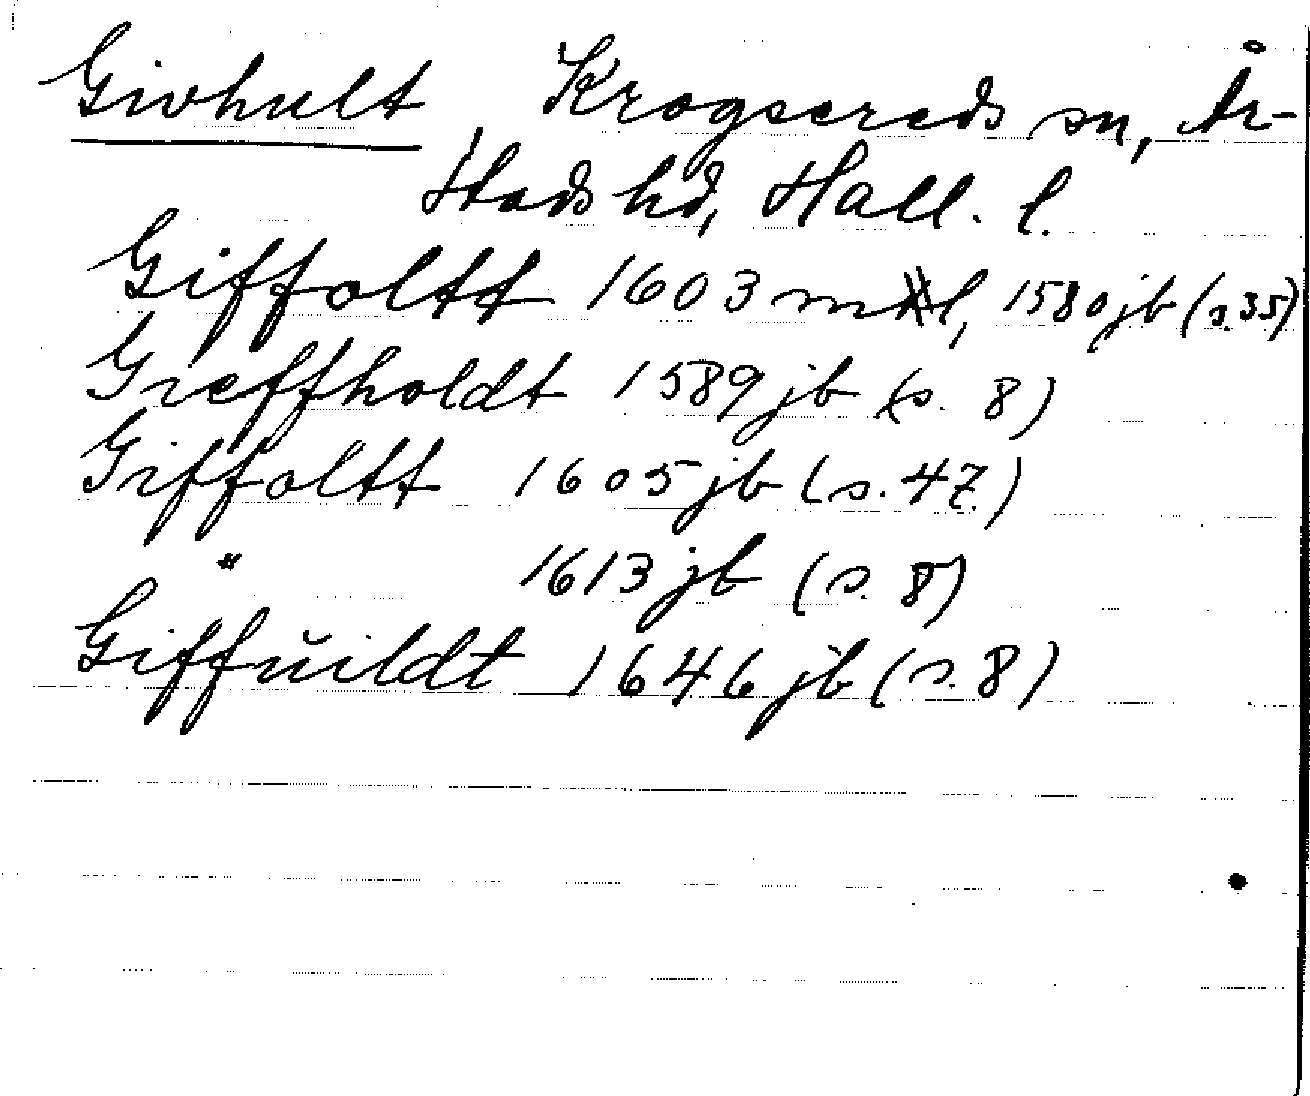 Givhult, Krogsereds sn, År-
stads hd, Hall. l.
Giffoltt 1603 ml, 1580 jb (s.35)
Greffholdt 1589 jb (s. 8)
Giffoltt 1605 jb (s. 47)
" 1613 jb (s. 8)
Giffŭildt 1646 jb (s. 8)